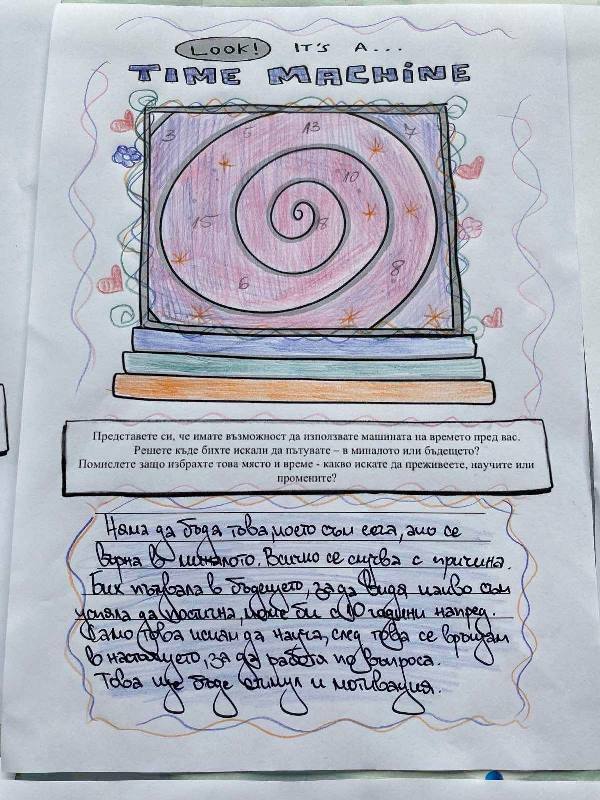 LOOK! IT'S A...
TIME MACHINE
3 5 13 7
10
15 18
6 8
Представете си, че имате възможност да използвате машината на времето пред вас.
Решете къде бихте искали да пътувате – в миналото или бъдещето?
Помислете защо избрахте това място и време - какво искате да преживеете, научите или
промените?
Няма да бъда това,което съм сега,ако се
върна в миналото. Всичко се случва с причина.
Бих пътувала в бъдещето, за да видя какво съм
успяла да постигна, може би с 10 години напред.
Само това искам да науча, след това се връщам
в настоящето, за да работя по въпроса.
Това ще бъде стимул и мотивация.